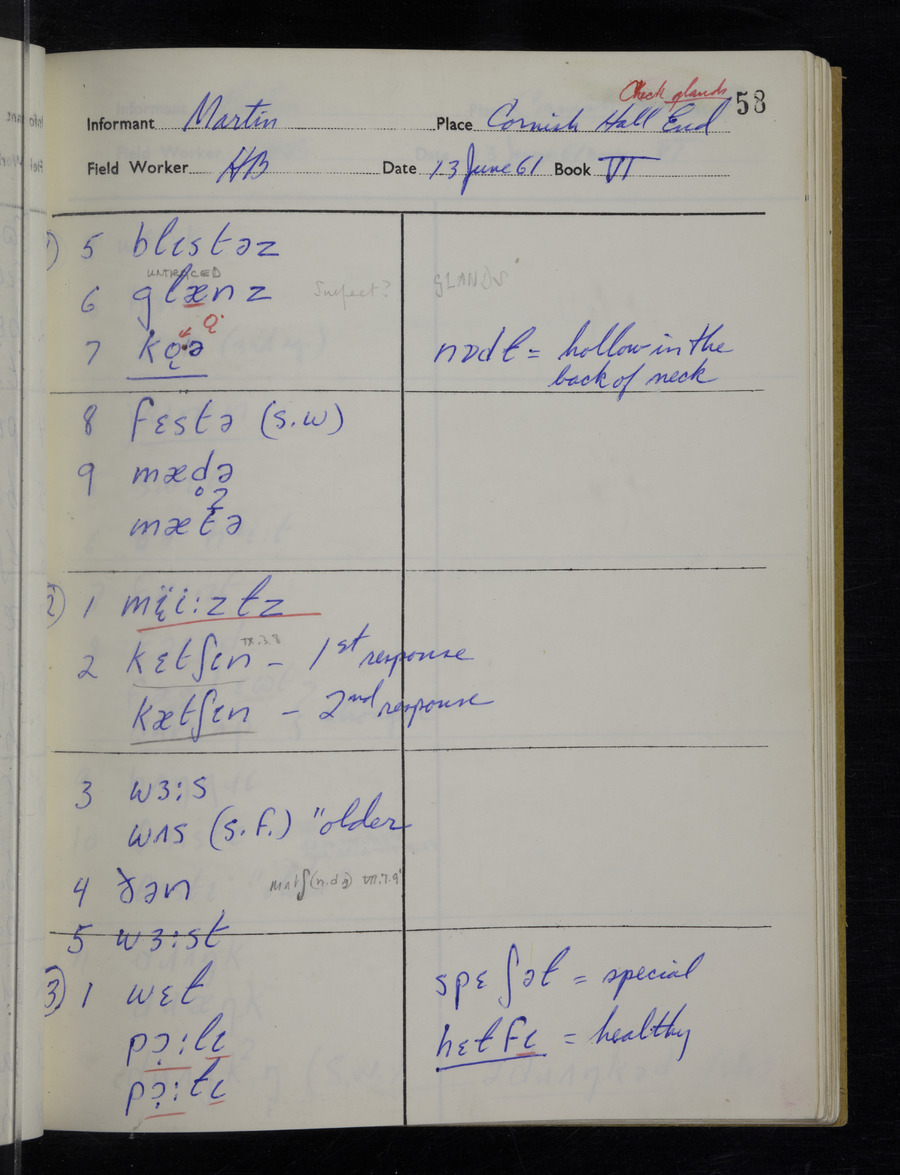 Check glands
58
Informant Martin Place Cornish Hall End
Field Worker HB Date 13 June 61 Book VI
1) 5 blɪstəz
UNTRACED
6 glænz Suspect? GLANDS
7
nɒdɫ = hollow in the
back of neck
8 fɛstə (s.w)
9 mæd̥ə
mætʔə
2) 1 mɪ̈i:zɫz
VII.3.8
2 kɛtʃɪn – 1st response
kætʃɪn – 2nd response
3 wɜ:s
wʌs (s.f.) "older
4 ðən
5 wɜ:st
3) 1 wɛɫ
spɛʃəɫ = special
pɔ̣:lɪ
hɛɫfɪ = healthy
pɔ̣:ɫɪ